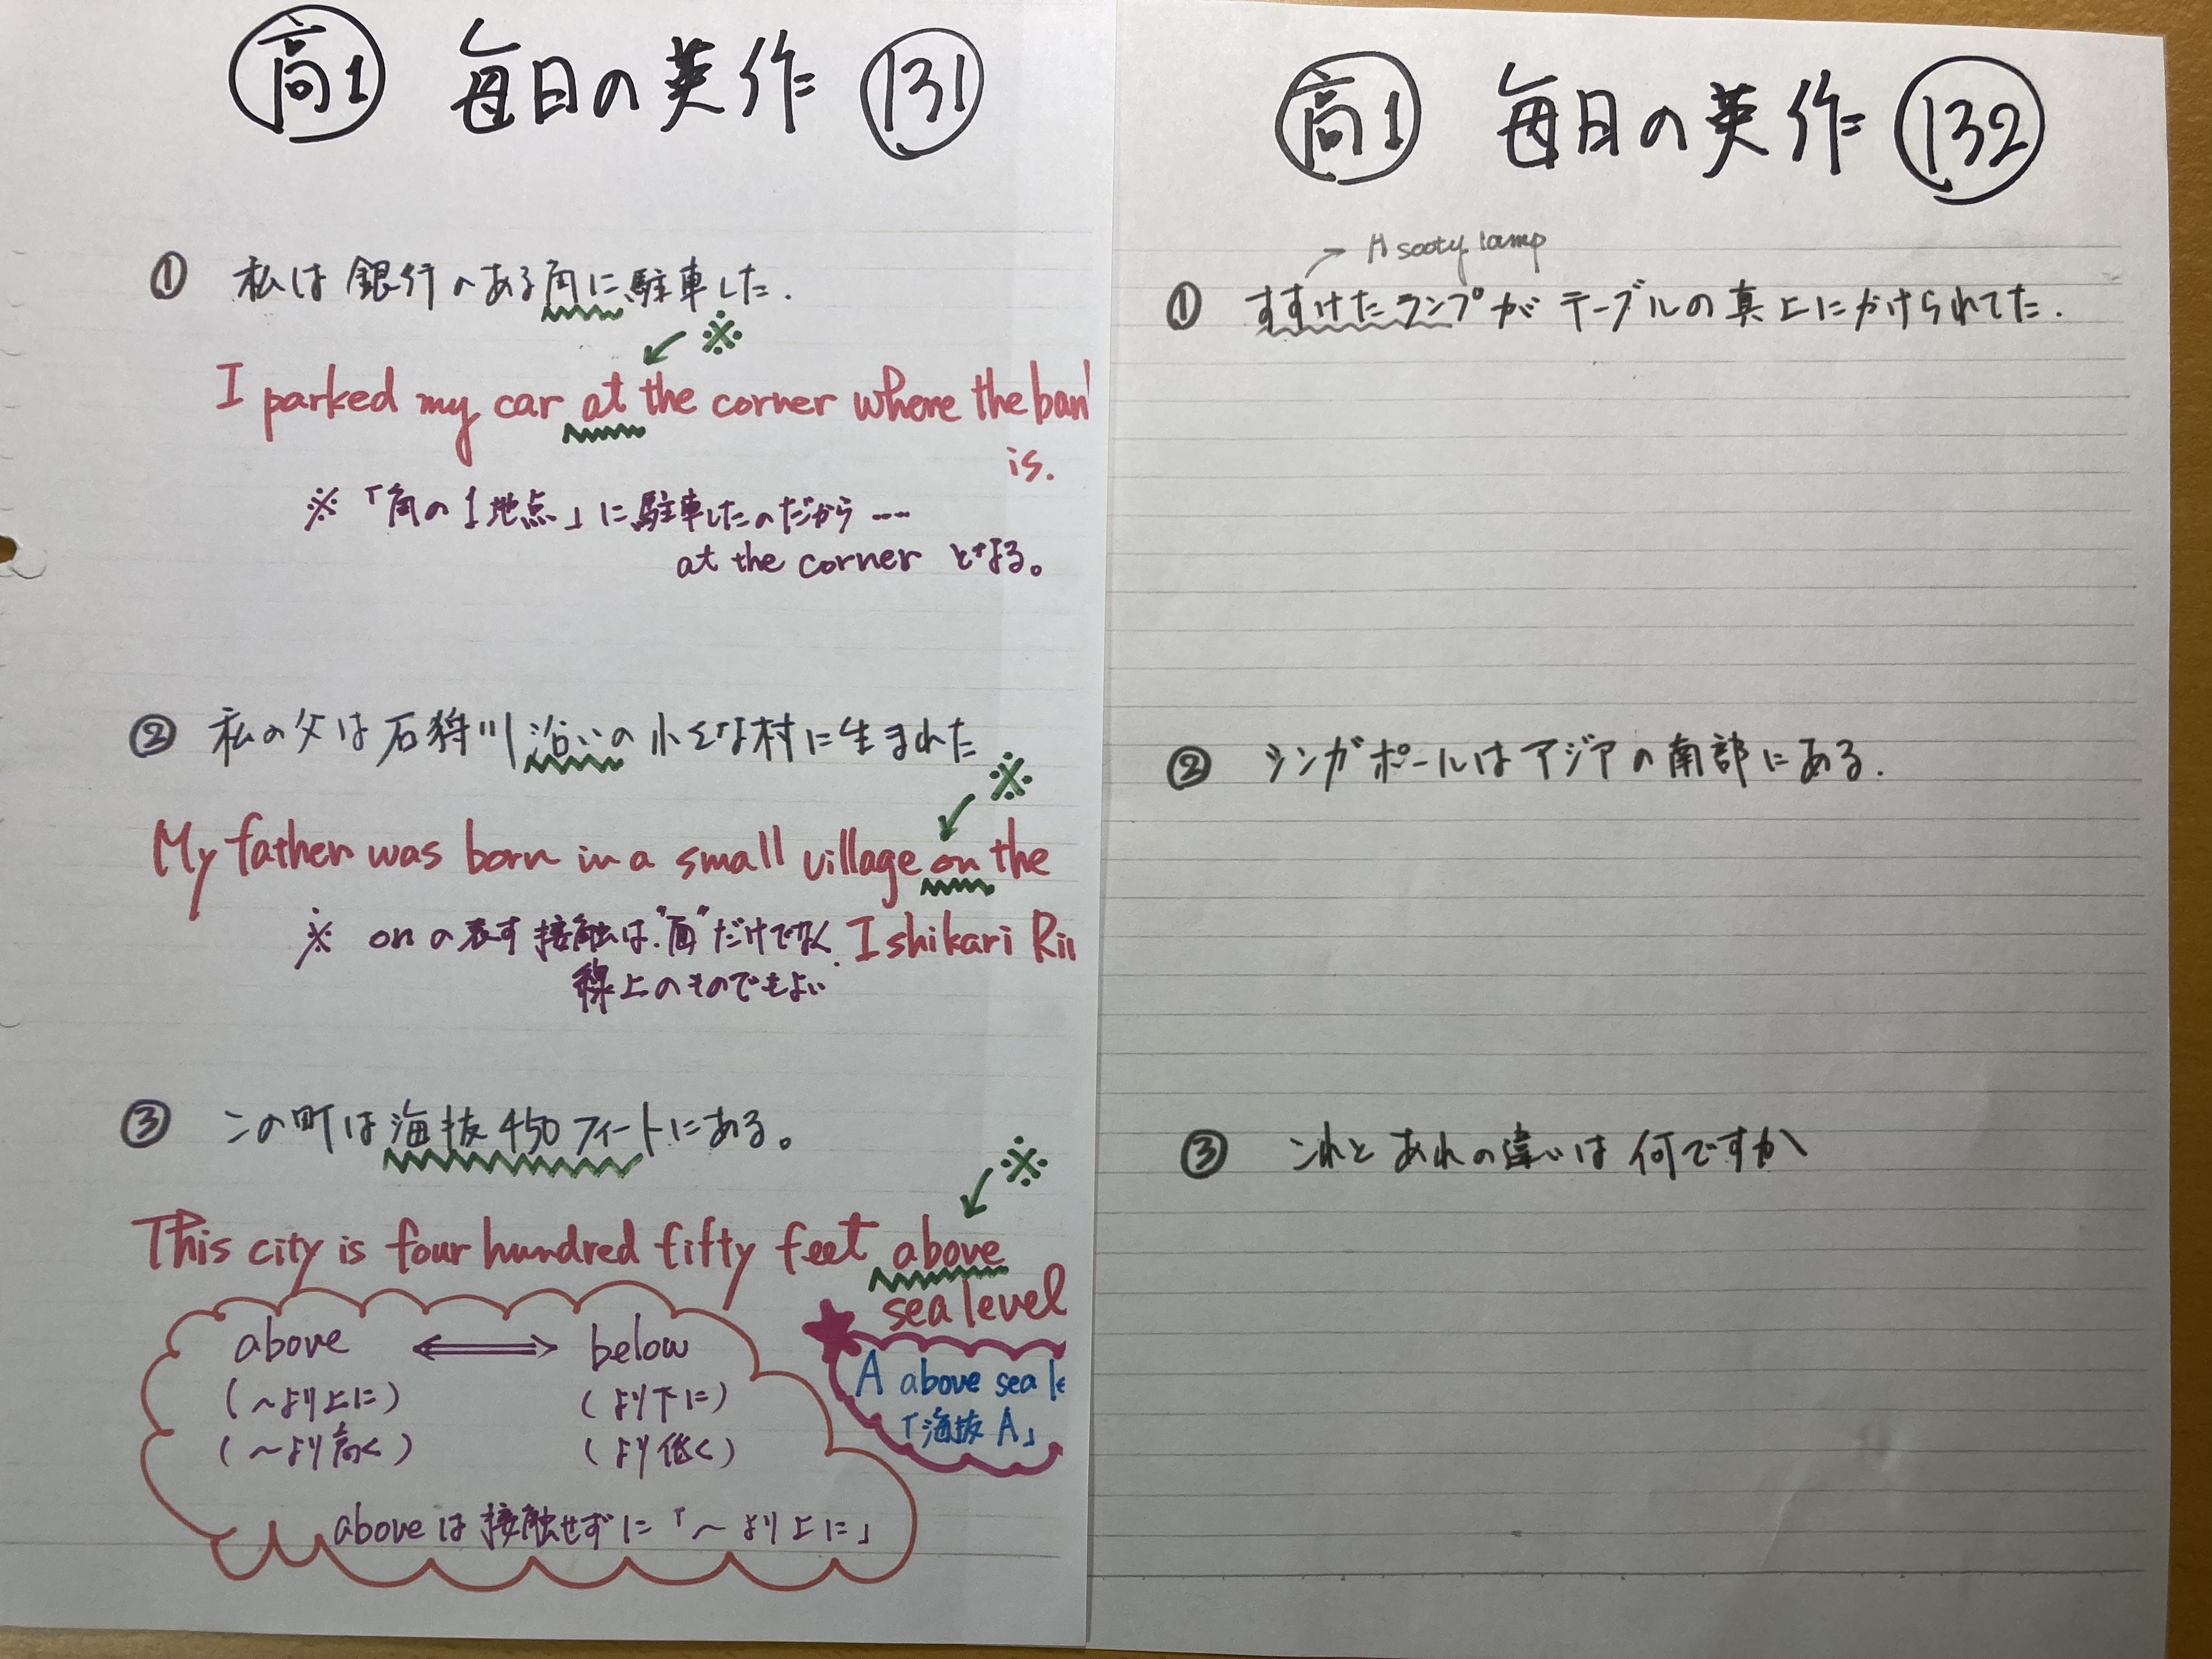 高1 毎日の英作 131
① 私は銀行のある角に駐車した.
※
I parked my car at the corner where the ban
is.
※「角の1地点」に駐車したのだから----
at the corner となる。
② 私の父は石狩川沿いの小さな村に生まれた
※
My father was born in a small village on the
Ishikari Ri
※ onの表す接触は"面"だけでなく
線上のものでもよい
③ この町は海抜450フィートにある。
※
This city is four hundred fifty feet above
sea level
above ⟺ below
(〜より上に) (より下に)
(〜より高く) (より低く)
aboveは接触せずに「〜より上に」
A above sea le
「海抜A」
高1 毎日の英作 132
→ A sooty lamp
① すすけたランプがテーブルの真上にかけられてた.
② シンガポールはアジアの南部にある.
③ これとあれの違いは何ですか